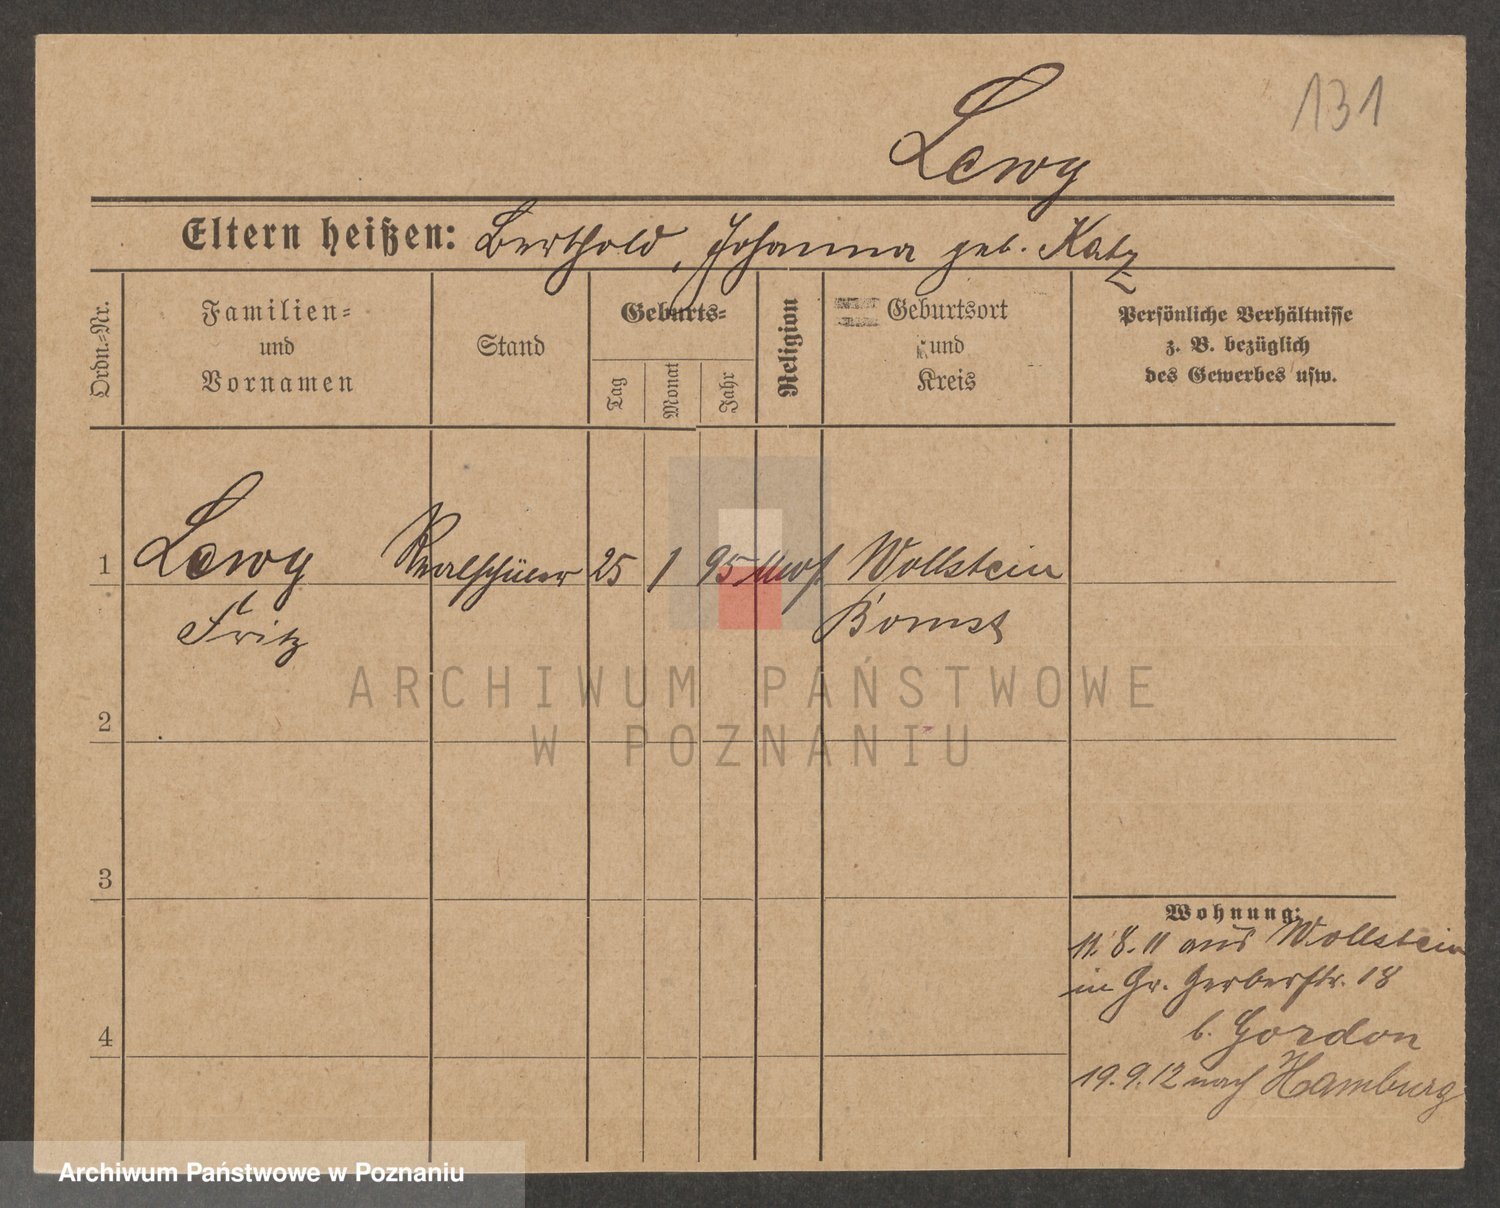 131
Lewy
Eltern heißen: Berthold, Johanna geb. Katz
Ordn.-Nr.
Familien-
und
Vornamen
Stand
Geburts-
Tag
Monat
Jahr
Religion
Geburtsort
und
Kreis
Persönliche Verhältnisse
z. B. bezüglich
des Gewerbes usw.
1 Lewy Realschüler 25 1 95 Wollstein
Fritz Bomst
ARCHIWUM PAŃSTWOWE
W POZNANIU
2
3
Wohnung:
11.8.11 aus Wollstein
in Gr. Gerberstr. 18
b. Gordon
4
19.9.12 nach Hamburg
Archiwum Państwowe w Poznaniu